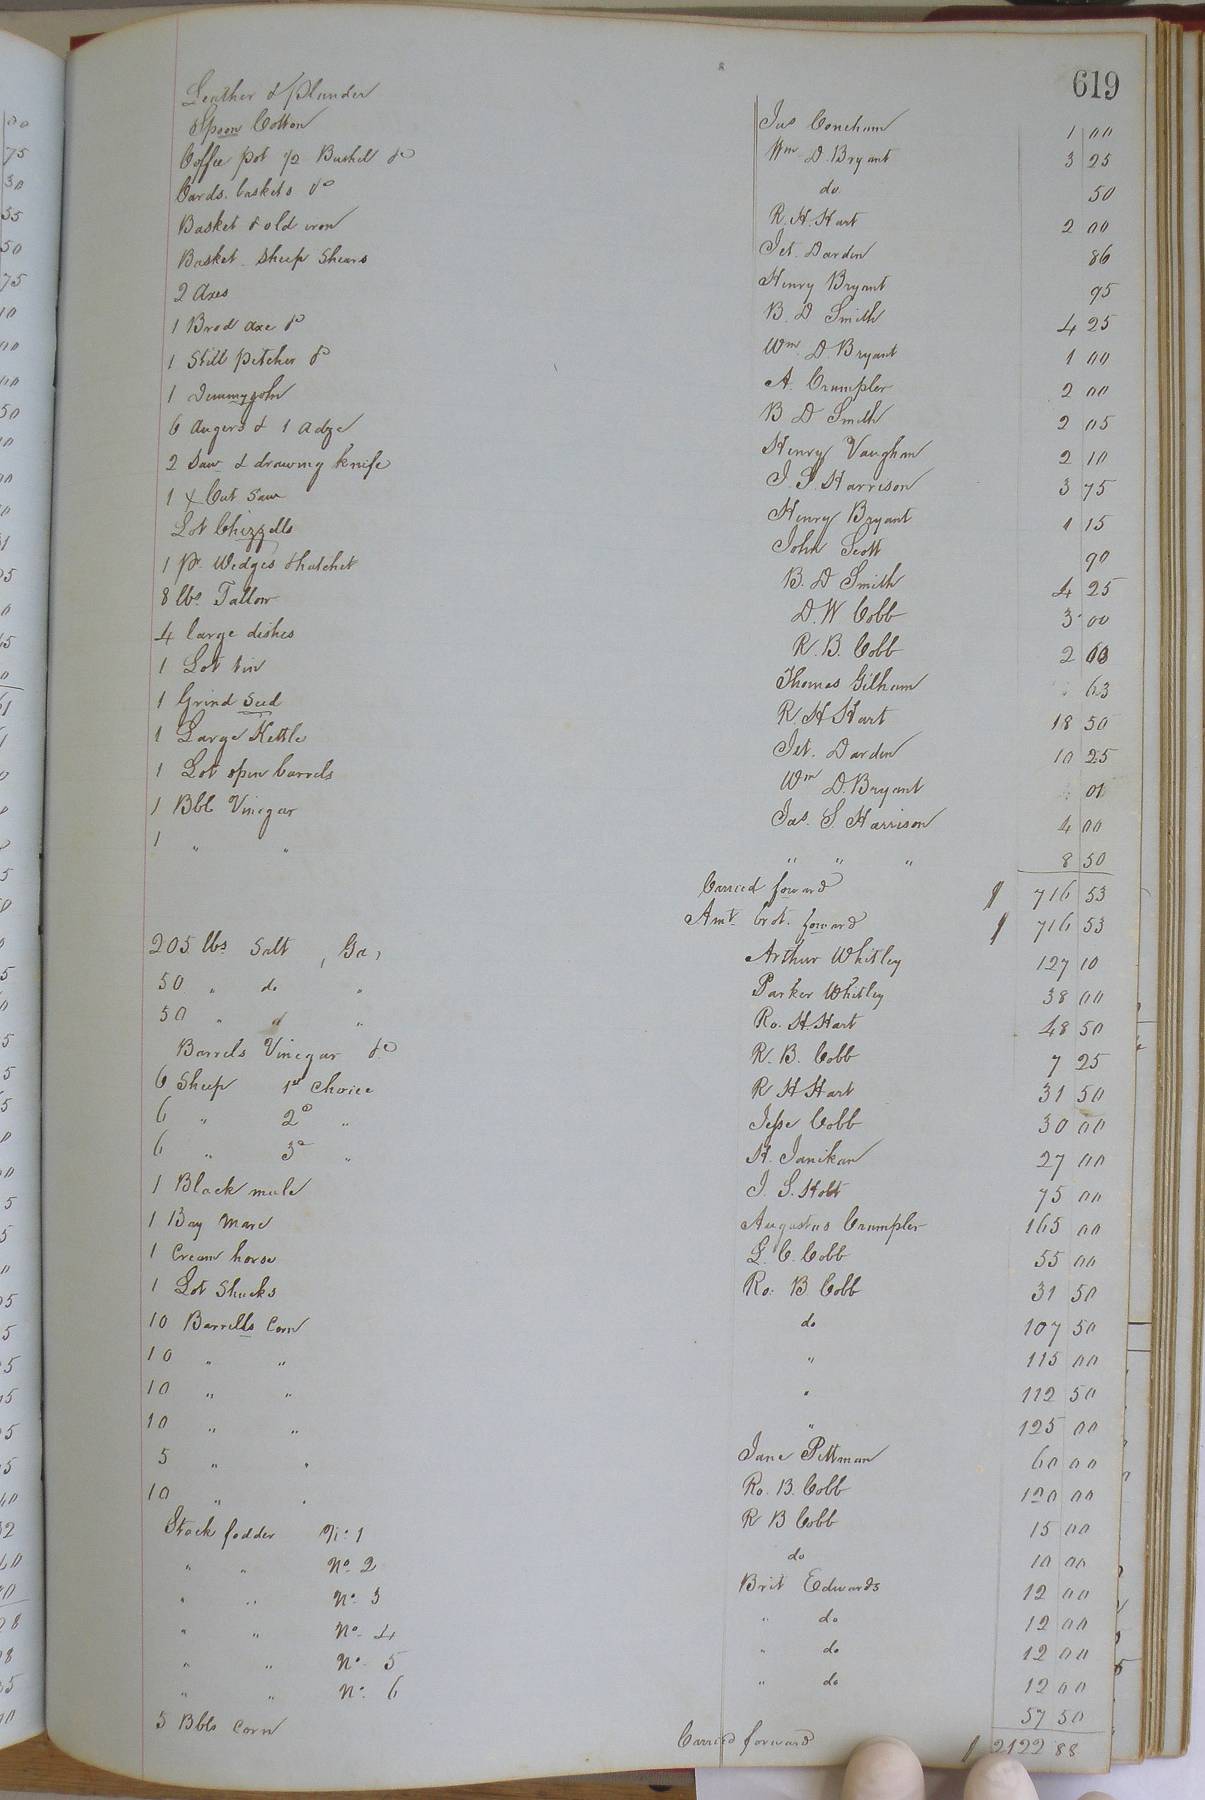 619
Leather & plunder Jas Concham 1 00
Spoon Cotton Wm D. Bryant 3 25
Coffee pot 1/2 Bushel &c do 50
Cards. baskets &c R. H. Hart 2 00
Basket & old iron Jet. Darden 86
Basket Sheep Shears Henry Bryant 95
2 Axes B. D Smith 4 25
1 Brod axe &c Wm D. Bryant 1 00
1 Still pitcher &c A. Crumpler 2 00
1 Demmyjohn B D Smith 2 05
6 Augers & 1 Adze Henry Vaughan 2 10
2 Saw & drawing knife J. S. Harrison 3 75
1 X Cut Saw Henry Bryant 1 15
Lot Chizzells John Scott 90
1 pr. Wedges & hatchet B. D Smith 4 25
8 lbs Tallow D. W Cobb 3 00
4 large dishes R. B. Cobb 2
1 Lot tin Thomas Gilham 63
1 Grind Sted R. H Hart 18 50
1 Large Kettle Jet. Darden 10 25
1 Lot open barrels Wm D. Bryant 01
1 Bbl Vinegar Jas. S. Harrison 4 00
1 " " " " " 8 50
Carried forward $ 716 53
Amt brot. forward $ 716 53
205 lbs Salt , Ga, Arthur Whitley 127 10
50 " do " Parker Whitley 38 00
50 " d " Ro. H. Hart 48 50
Barrels Vinegar &c R. B. Cobb 7 25
6 Sheep 1st Choice R H Hart 31 50
6 " 2d " Jesse Cobb 30 00
6 " 3d " H. Janikan 27 00
1 Black mule J. S. Holt 75 00
1 Bay Mare Augustus Crumpler 165 00
1 Cream horse L. C. Cobb 55 00
1 Lot Shucks Ro. B Cobb 31 50
10 Barrells Corn do 107 50
10 " " " 115 00
10 " " " 112 50
10 " " " 125 00
5 " " Jane Pittman 60 00
10 " " Ro. B. Cobb 120 00
Stack fodder No 1 R B Cobb 15 00
" " No 2 do 10 00
" " No. 3 Brit Edwards 12 00
" " No. 4 " do 12 00
" " No. 5 " do 12 00
" " No. 6 " do 12 00
5 Bbls Corn 57 50
Carried forward $ 2122 88